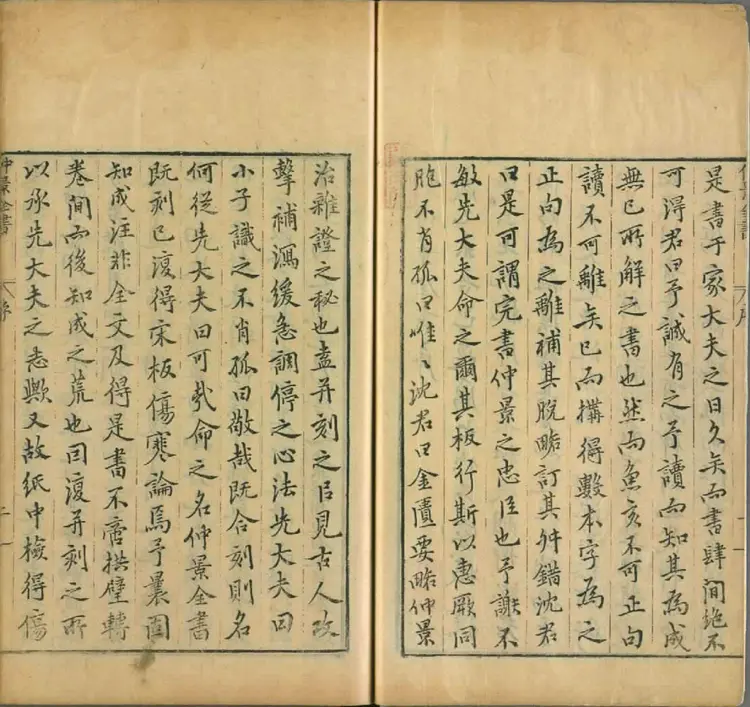 是書于家大夫之日久矣而書肆間絕不
可得君曰予誠有之予讀而知其為成
無已所解之書也然而魚亥不可正句
讀不可離矣已而搆得數本字為之
正句為之離補其脫略訂其舛錯沈君
曰是可謂完書仲景之忠臣也予謝不
敏先大夫命之爾其板行斯以惠厥同
胞不肖孤曰唯〻沈君曰金匱要略仲景
治雜證之秘也盍并刻之以見古人攻
擊補瀉緩急調停之心法先大夫曰
小子識之不肖孤曰敬哉既合刻則名
何從先大夫曰可哉命之名仲景全書
既刻已復得宋板傷寒論焉予曩固
知成注非全文及得是書不啻拱璧轉
卷間而後知成之荒也因復并刻之所
以承先大夫之志歟又故紙中檢得傷
仲景全書 序